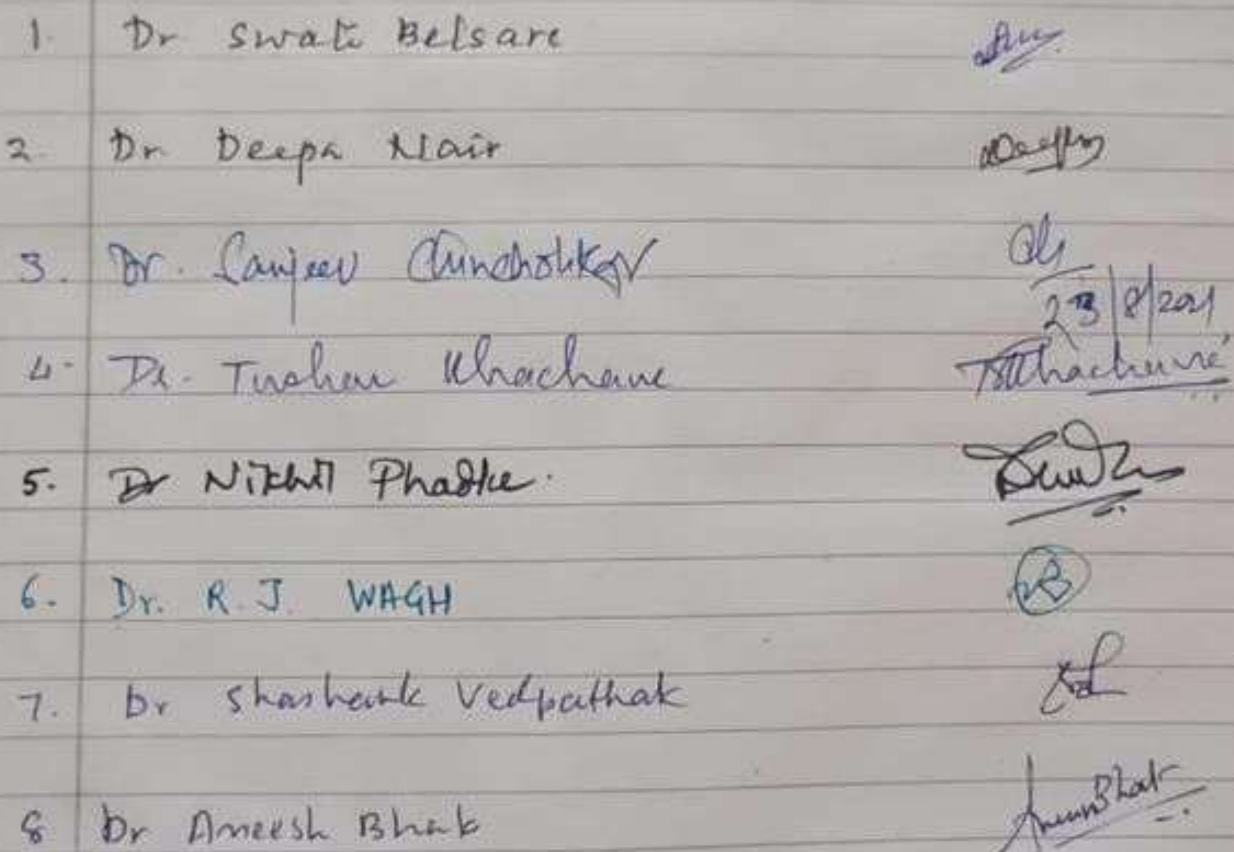 1. Dr Swati Belsare
2. Dr Deepa Nair
3. Dr. Sanjeev Chincholikar
23/8/2021
4. Dr. Tushar Khachane TKhachane
5. Dr Nikhil Phadke.
6. Dr. R. J. WAGH
7. Dr Shashank Vedpathak
8 Dr Aneesh Bhat